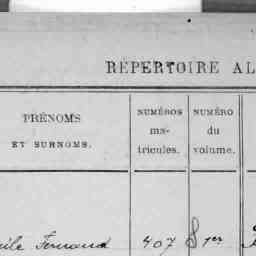 RÉPERTOIRE AL
PRÉNOMS
ET SURNOMS.
NUMÉROS
ma-
tricules.
NUMÉRO
du
volume.
Fernand 407 8 1er